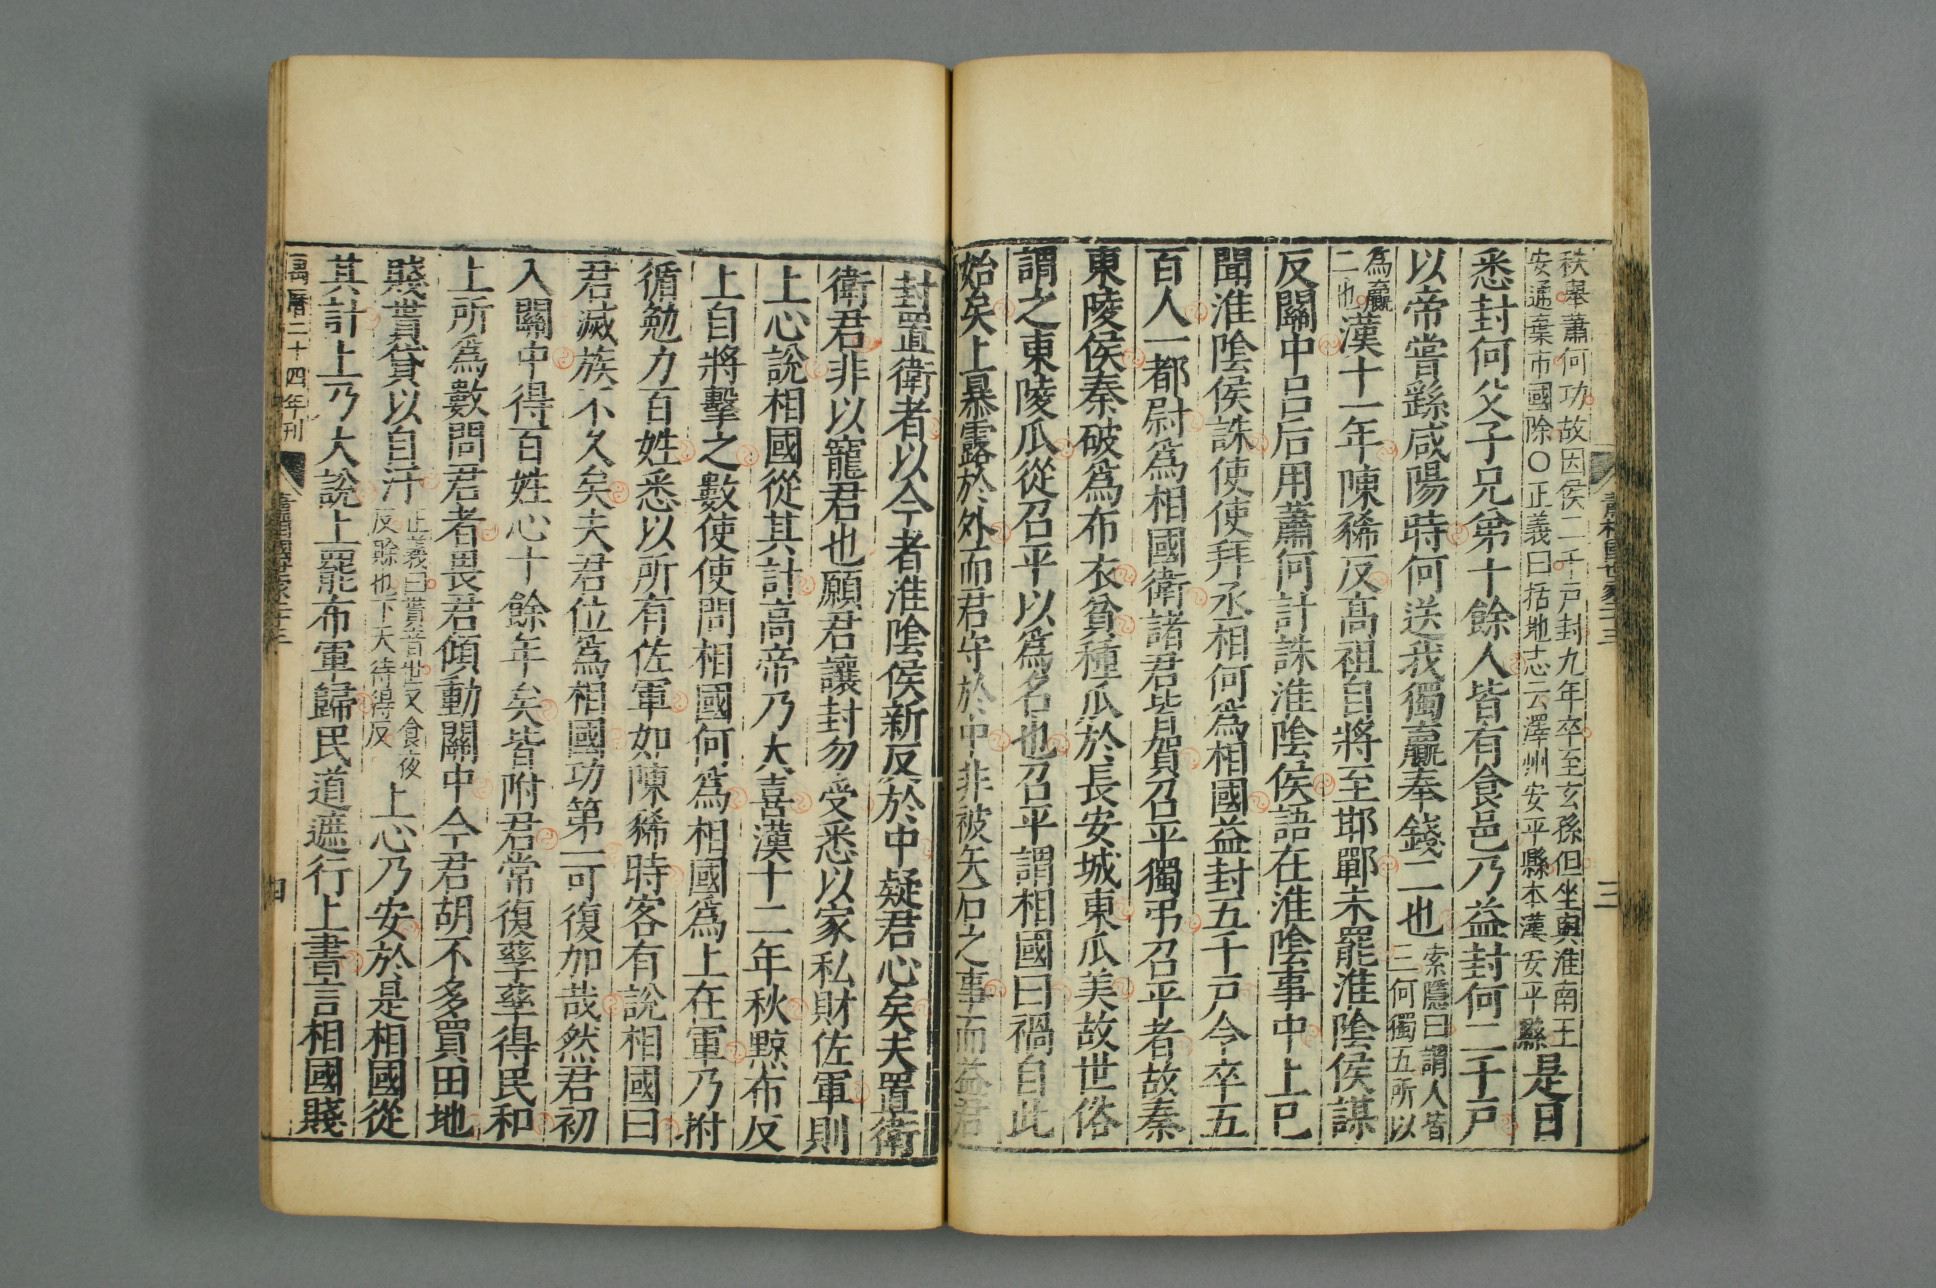 秩舉蕭何功故因侯二千戶封九年卒至玄孫但坐與淮南王
安通棄市國除○正義曰括地志云澤州安平縣本漢安平縣
是日
悉封何父子兄弟十餘人皆有食邑乃益封何二千戶
以帝嘗繇咸陽時何送我獨贏奉錢二也
索隱曰謂人皆
三何獨五所以
為贏
二也
漢十一年陳豨反高祖自將至邯鄲未罷淮陰侯謀
反關中呂后用蕭何計誅淮陰侯語在淮陰事中上已
聞淮陰侯誅使使拜丞相何爲相國益封五千戶令卒五
百人一都尉爲相國衛諸君皆賀召平獨弔召平者故秦
東陵侯秦破爲布衣貧種瓜於長安城東瓜美故世俗
謂之東陵瓜從召平以爲名也召平謂相國曰禍自此
始矣上暴露於外而君守於中非被矢石之事而益君
蕭相國世家二十三
三
封置衛者以今者淮陰侯新反於中疑君心矣夫置衛
衛君非以寵君也願君讓封勿受悉以家私財佐軍則
上心說相國從其計高帝乃大喜漢十二年秋黥布反
上自將擊之數使使問相國何爲相國爲上在軍乃拊
循勉力百姓悉以所有佐軍如陳豨時客有說相國曰
君滅族不久矣夫君位爲相國功第一可復加哉然君初
入關中得百姓心十餘年矣皆附君常復孳孳得民和
上所爲數問君者畏君傾動關中今君胡不多買田地
賤貰貸以自汙
正義曰貰音世又食夜
反賒也下天得得反
上心乃安於是相國從
其計上乃大說上罷布軍歸民道遮行上書言相國賤
萬曆二十四年刊
蕭相國世家二十三
四